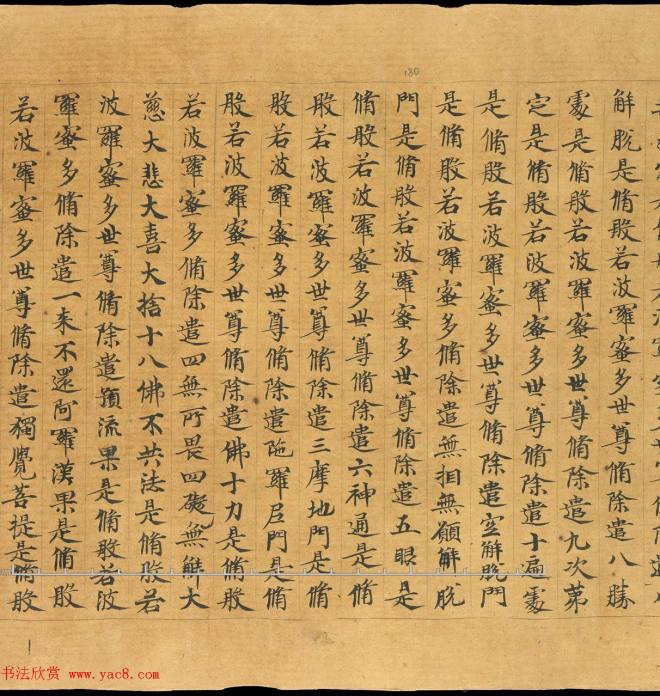 解脫是脩般若波羅蜜多世尊脩除遣八勝
處是脩般若波羅蜜多世尊脩除遣九次第
定是脩般若波羅蜜多世尊脩除遣十遍處
是脩般若波羅蜜多世尊脩除遣空解脫門
是脩般若波羅蜜多脩除遣無相無願解脫
門是脩般若波羅蜜多世尊脩除遣五眼是
脩般若波羅蜜多世尊脩除遣六神通是脩
般若波羅蜜多世尊脩除遣三摩地門是脩
般若波羅蜜多世尊脩除遣陁羅尼門是脩
般若波羅蜜多世尊脩除遣佛十力是脩般
若波羅蜜多脩除遣四無所畏四礙無解大
慈大悲大喜大捨十八佛不共法是脩般若
波羅蜜多世尊脩除遣預流果是脩般若波
羅蜜多脩除遣一来不還阿羅漢果是脩般
若波羅蜜多世尊脩除遣獨覺菩提是脩般
180
书法欣赏 www.yac8.com